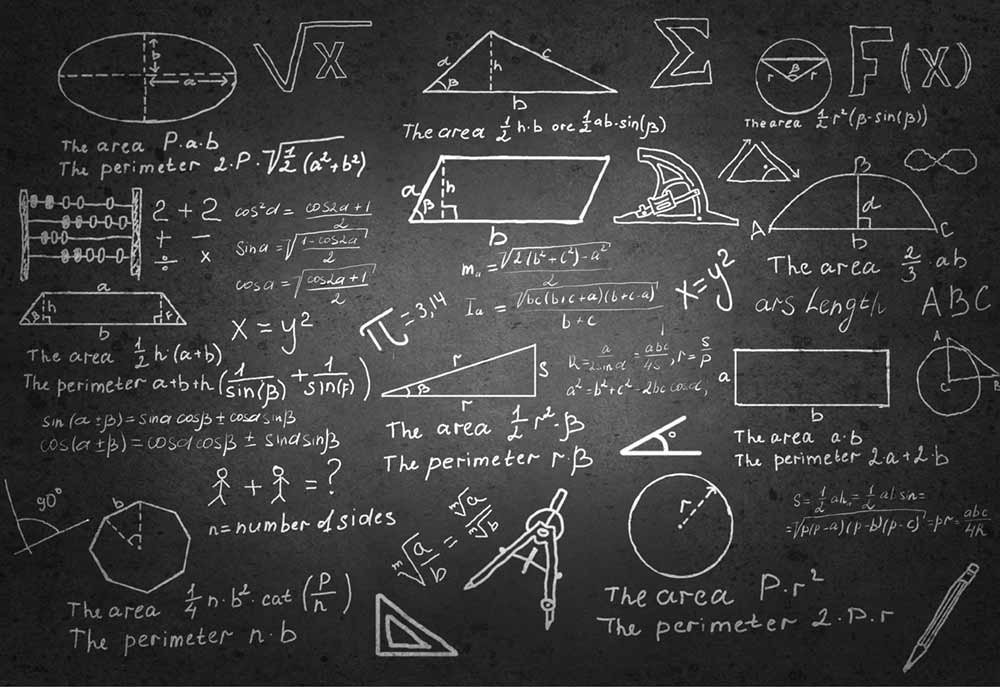 b
a
√x
a
h
c
β
b
Σ
β
r
r
F(x)
The area P.a.b
The perimeter 2.P.√½(a²+b²)
The area ½ h·b ore ½ab·sin(β)
The area ½ r²(β-sin(β))
2 + 2
+ −
÷ x
cos²α = cos2α+1/2
sina = √1-cos2a/2
cosa = √cos2a+1/2
a
h
β
b
B
d
A
b
C
The area ⅔·ab
ars Length
ABC
mₐ = √2(b²+c²)-a²/2
Iₐ = √bc(b+c+a)(b+c-a)/b+c
x=y²
a
h
β
F
b
x = y²
π=3,14
The area ½ h·(a+b)
The perimeter a+b+h(1/sin(β) + 1/sin(F))
r
S
β
r
R = a/2sinα = abc/4S, r = S/P
a² = b²+c²-2bc cosα,
a
b
A
C
B
sin(α±β)=sinα cosβ ± cosα sinβ
cos(α±β)=cosα cosβ ± sinα sinβ
The area ½ r²·β
The perimeter r.β
The area a·b
The perimeter 2a+2·b
+ = ?
90°
b
n=number of sides
ᵐ√a/b = ᵐ√a/ᵐ√b
r
S = ½ahₐ = ½ab sin=
=√p(p-a)(p-b)(p-c) = pr = abc/4R
The area ¼ n·b²·cat (P/n)
The perimeter n·b
The area P.r²
The perimeter 2.P.r